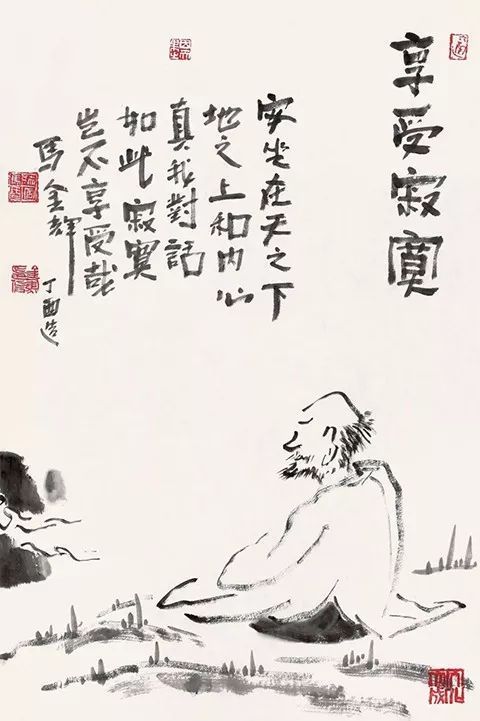 享受寂寞
安坐在天之下
地之上和内心
真我對話
如此寂寞
岂不享受哉
馬金輝
丁酉造